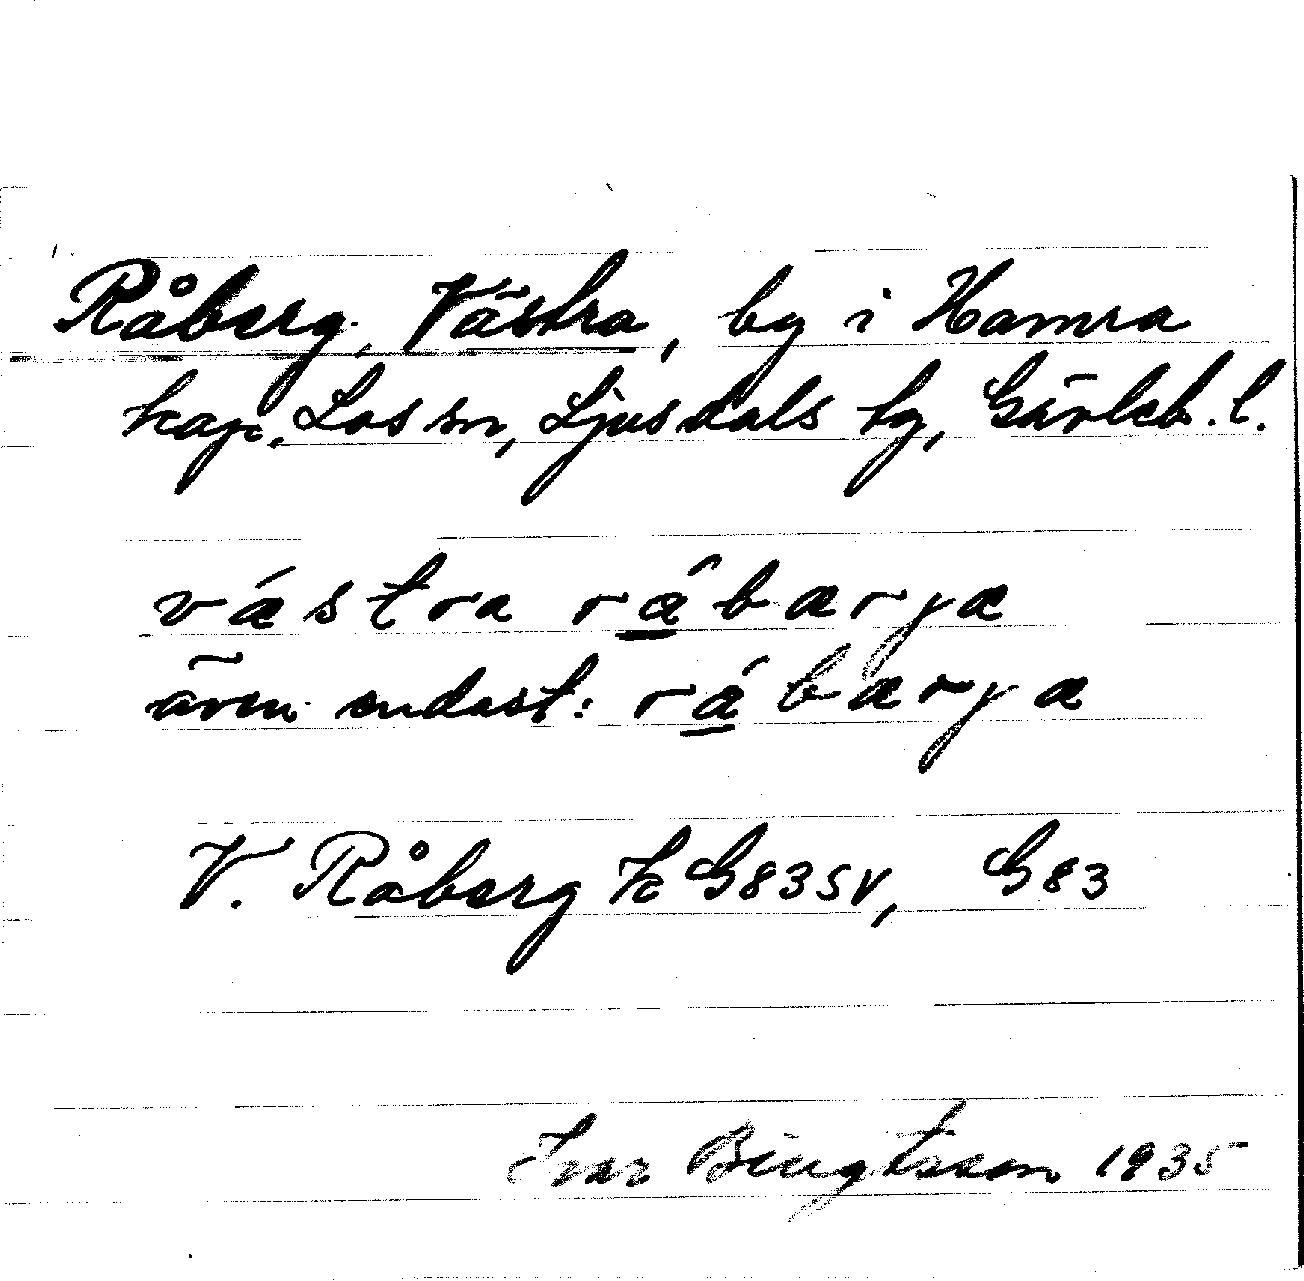 Råberg, Västra, by i Hamra
kap., Los sn, Ljusdals tg, Gävleb. l.
vǽstra rǽ̱bærjæ
även endast: rǽ̱bærjæ
V. Råberg Ek G83SV, G83
Ivar Bengtsson 1935